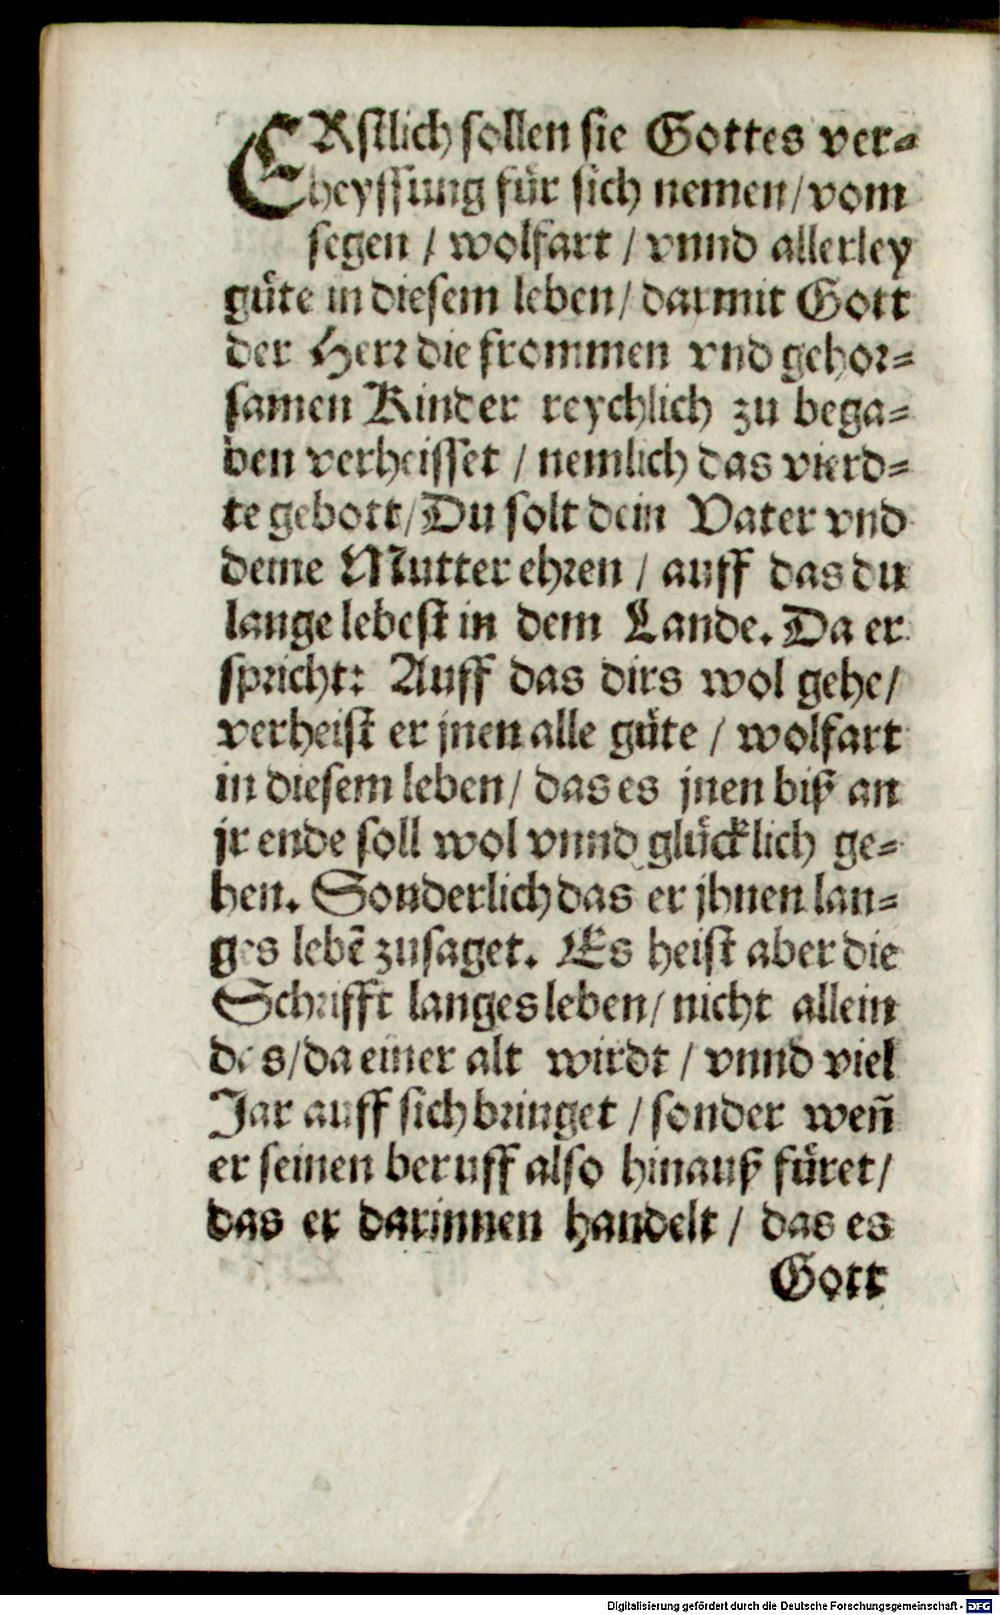 ERstlich sollen sie Gottes ver-
heyssung für sich nemen/ vom
segen / wolfart / vnnd allerley
güte in diesem leben/ darmit Gott
der Herr die frommen vnd gehor-
samen Kinder reychlich zu bega-
ben verheisset / nemlich das vierd-
te gebott/ Du solt dein Vater vnd
deine Mutter ehren / auff das du
lange lebest in dem Lande. Da er
spricht: Auff das dirs wol gehe/
verheist er jnen alle güte / wolfart
in diesem leben/ das es jnen biß an
jr ende soll wol vnnd glücklich ge-
hen. Sonderlich das er jhnen lan-
ges lebẽ zusaget. Es heist aber die
Schrifft langes leben/ nicht allein
das/ da einer alt wirdt / vnnd viel
Jar auff sich bringet / sonder weñ
er seinen beruff also hinauß füret/
das er darinnen handelt / das es
Gott
Digitalisierung gefördert durch die Deutsche Forschungsgemeinschaft - DFG